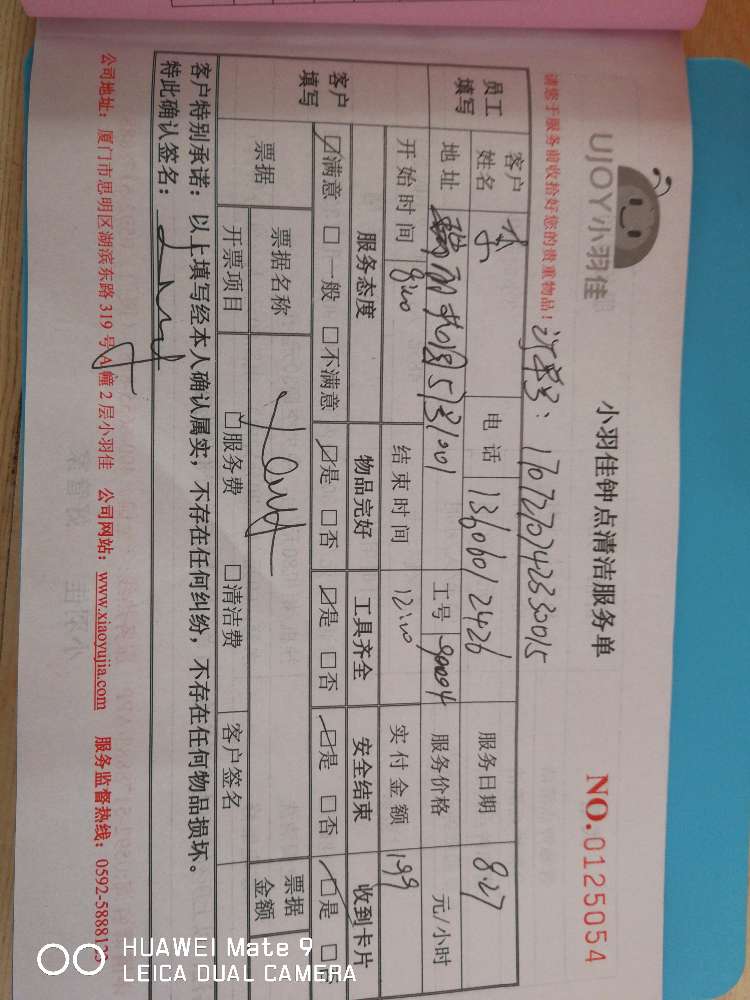 UJOY小羽佳
小羽佳钟点清洁服务单
NO.0125054
请您于服务前收拾好您的贵重物品！
17072707423330015
员工填写 客户姓名 李 电话 13606012426 服务日期 8.27
地址 5/3/1001 工号 服务价格 元/小时
开始时间 8:00 结束时间 12:00 实付金额 199
客户填写 服务态度 物品完好 工具齐全 安全结束 收到卡片
☑满意 □一般 □不满意 ☑是 □否 ☑是 □否 ☑是 □否 ☑是 □否
票据 票据名称 票据金额
开票项目 □服务费 □清洁费 客户签名
客户特别承诺：以上填写经本人确认属实，不存在任何纠纷，不存在任何物品损坏。
特此确认签名：
公司地址：厦门市思明区湖滨东路319号A幢2层小羽佳 公司网站：www.xiaoyujia.com 服务监督热线：0592-5888123
HUAWEI Mate 9
LEICA DUAL CAMERA